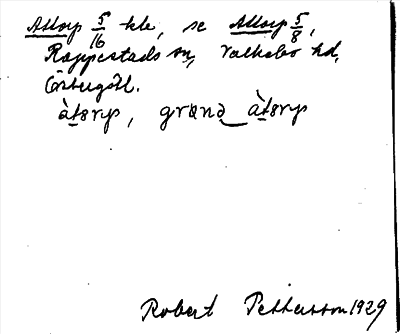 Attorp 5/16 hle, se Attorp 5/8,
Rappestads sn, Valkebo hd,
Östergötl.
àtørp, grønə àtørp
Robert Pettersson 1929